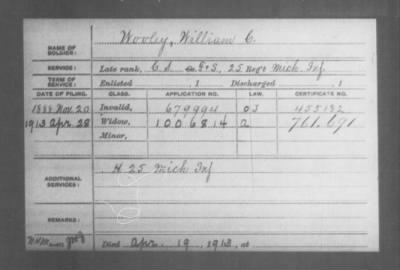 Wooley, William C.
NAME OF SOLDIER:
SERVICE: Late rank, C.S. F+S, 25 Reg't Mich. Inf
TERM OF SERVICE: Enlisted , 1 Discharged , 1
DATE OF FILING. CLASS. APPLICATION NO. LAW. CERTIFICATE NO.
1888 Nov. 20 Invalid, 679994 455132
1913 Apr. 28 Widow, 1006814 a 761.691
Minor,
ADDITIONAL SERVICES: H 25 Mich Inf
REMARKS:
Died Apr. 19, 1913, at